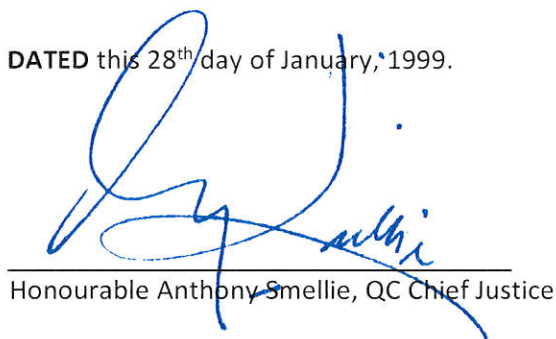 DATED this 28th day of January, 1999.
Smellie
Honourable Anthony Smellie, QC Chief Justice